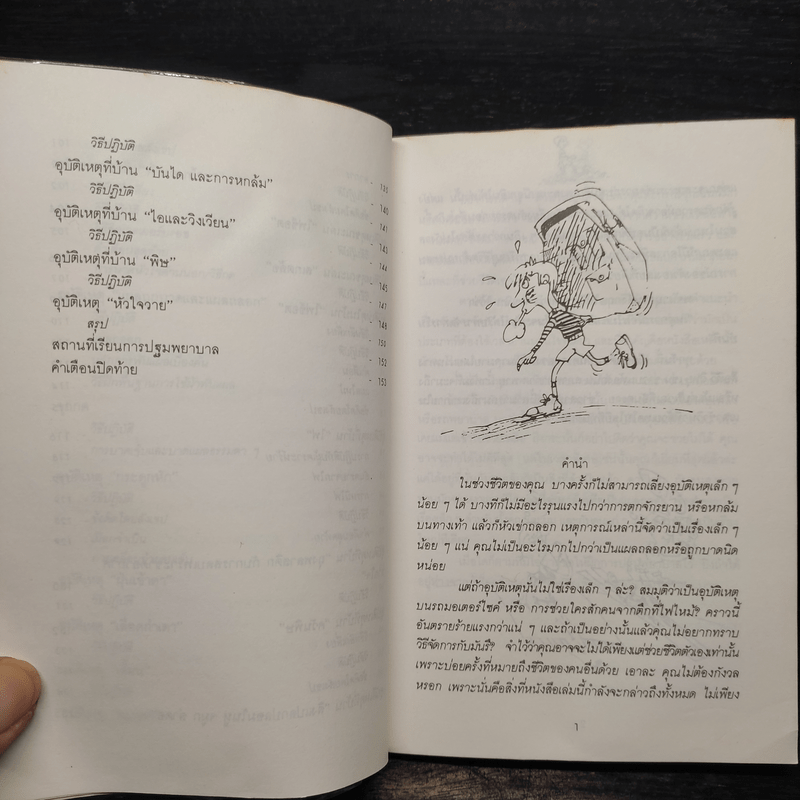 วิธีปฏิบัติ
อุบัติเหตุที่บ้าน "บันได และการหกล้ม" - 133
วิธีปฏิบัติ - 140
อุบัติเหตุที่บ้าน "ไอและวิงเวียน" - 141
วิธีปฏิบัติ - 143
อุบัติเหตุที่บ้าน "พิษ" - 144
วิธีปฏิบัติ - 145
อุบัติเหตุ "หัวใจวาย" - 147
สรุป - 148
สถานที่เรียนการปฐมพยาบาล - 150
คำเตือนปิดท้าย - 152
- 153
คำนำ
ในช่วงชีวิตของคุณ บางครั้งก็ไม่สามารถเลี่ยงอุบัติเหตุเล็ก ๆ
น้อย ๆ ได้ บางทีก็ไม่มีอะไรรุนแรงไปกว่าการตกจักรยาน หรือหกล้ม
บนทางเท้า แล้วก็หัวเข่าถลอก เหตุการณ์เหล่านี้จัดว่าเป็นเรื่องเล็ก ๆ
น้อย ๆ แน่ คุณไม่เป็นอะไรมากไปกว่าเป็นแผลถลอกหรือถูกบาดนิด
หน่อย
แต่ถ้าอุบัติเหตุนั่นไม่ใช่เรื่องเล็ก ๆ ล่ะ? สมมุติว่าเป็นอุบัติเหตุ
บนรถมอเตอร์ไซค์ หรือ การช่วยใครสักคนจากตึกที่ไฟไหม้? คราวนี้
อันตรายร้ายแรงกว่าแน่ ๆ และถ้าเป็นอย่างนั้นแล้วคุณไม่อยากทราบ
วิธีจัดการกับมันรึ? จำไว้ว่าคุณอาจจะไม่ได้เพียงแต่ช่วยชีวิตตัวเองเท่านั้น
เพราะบ่อยครั้งที่หมายถึงชีวิตของคนอื่นด้วย เอาละ คุณไม่ต้องกังวล
หรอก เพราะนั่นคือสิ่งที่หนังสือเล่มนี้กำลังจะกล่าวถึงทั้งหมด ไม่เพียง
1